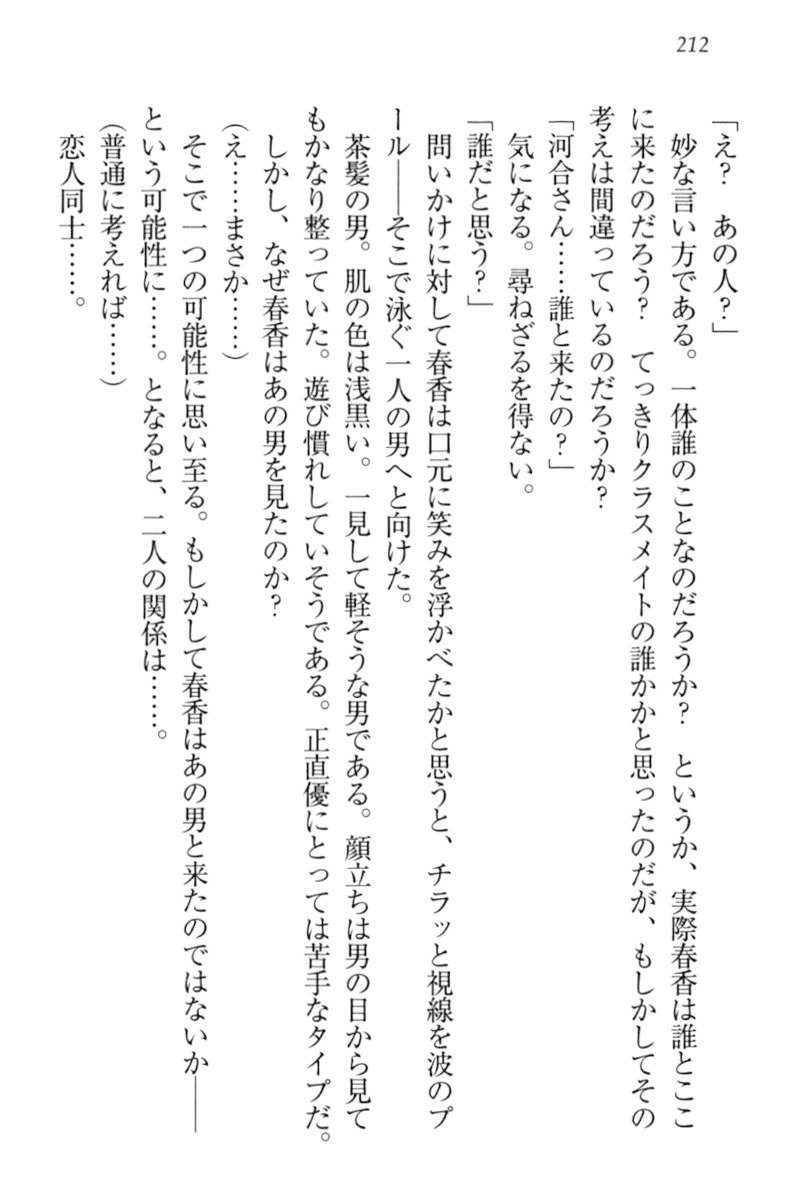 212
「え？　あの人？」
　妙な言い方である。一体誰のことなのだろうか？　というか、実際春香は誰とここ
に来たのだろう？　てっきりクラスメイトの誰かかと思ったのだが、もしかしてその
考えは間違っているのだろうか？
「河合さん……誰と来たの？」
　気になる。尋ねざるを得ない。
「誰だと思う？」
　問いかけに対して春香は口元に笑みを浮かべたかと思うと、チラッと視線を波のプ
ール――そこで泳ぐ一人の男へと向けた。
　茶髪の男。肌の色は浅黒い。一見して軽そうな男である。顔立ちは男の目から見て
もかなり整っていた。遊び慣れしていそうである。正直優にとっては苦手なタイプだ。
　しかし、なぜ春香はあの男を見たのか？
（え……まさか……）
　そこで一つの可能性に思い至る。もしかして春香はあの男と来たのではないか――
という可能性に……。となると、二人の関係は……。
（普通に考えれば……）
　恋人同士……。